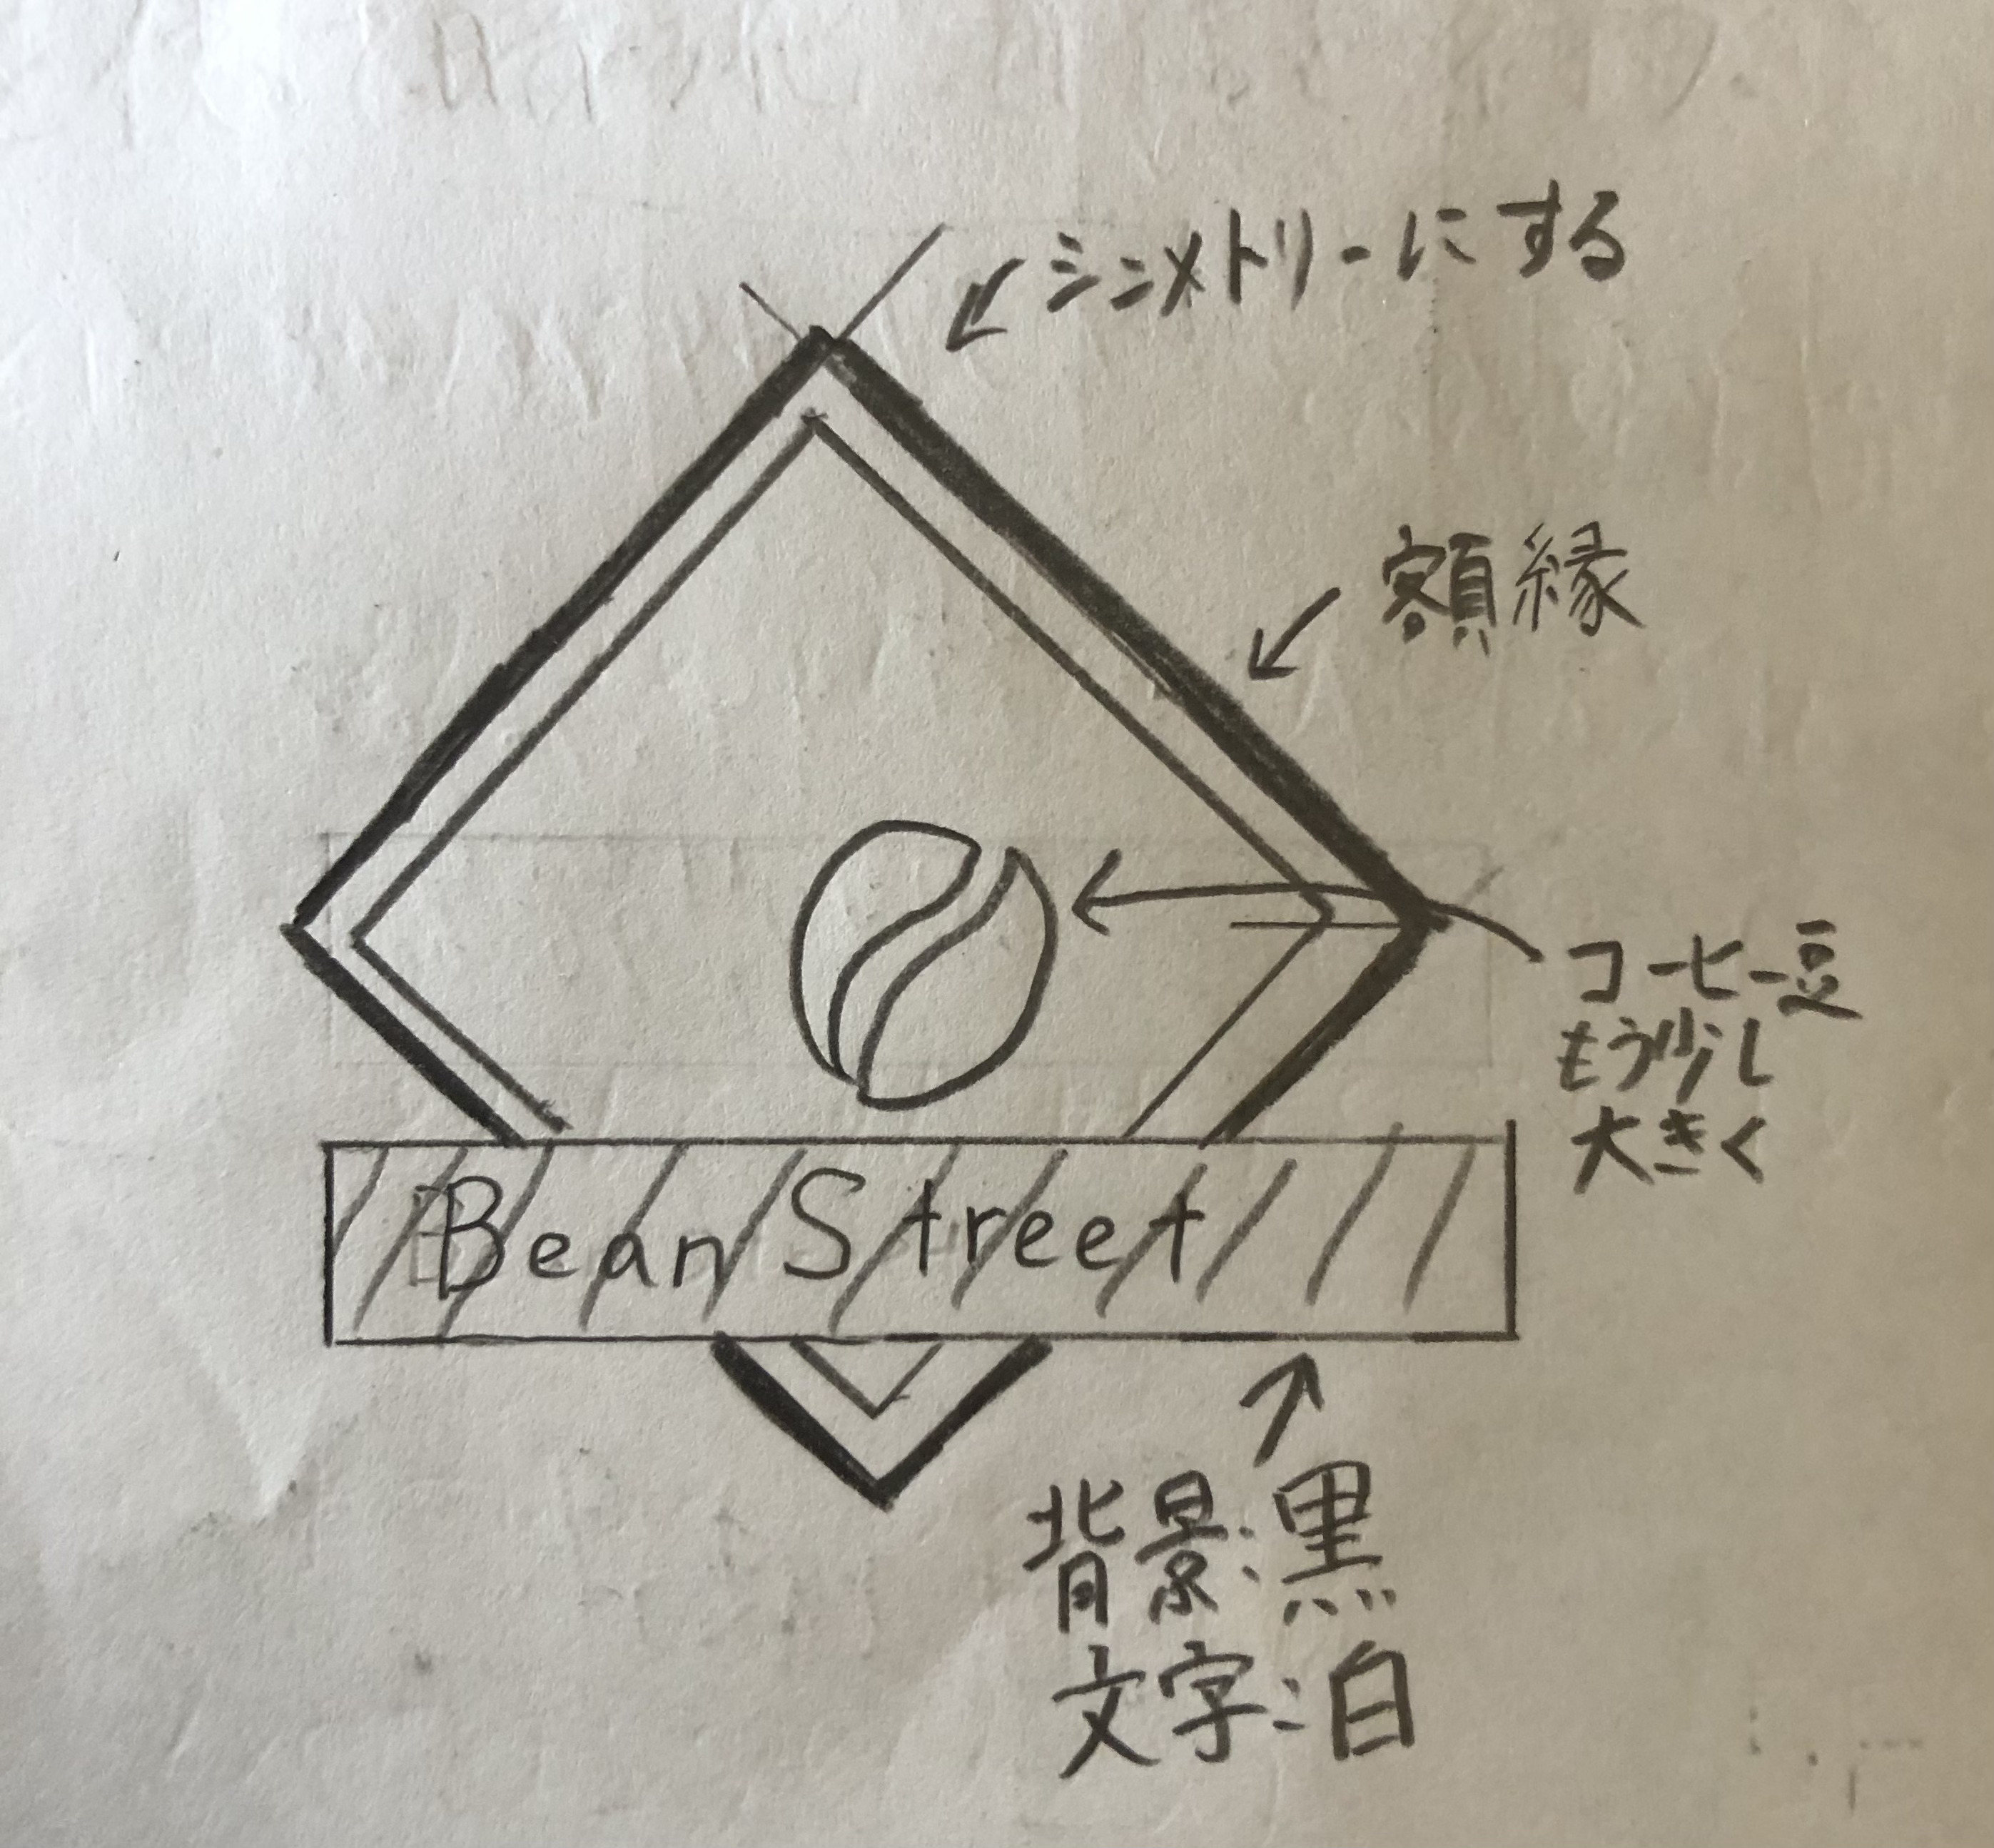 シンメトリーにする
額縁
コーヒー豆
もう少し
大きく
Bean Street
背景:黒
文字:白